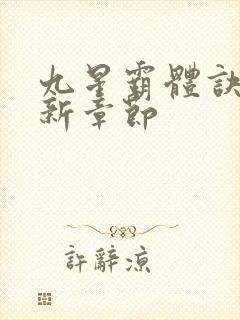 九星霸體訣
新章節
許辭凉